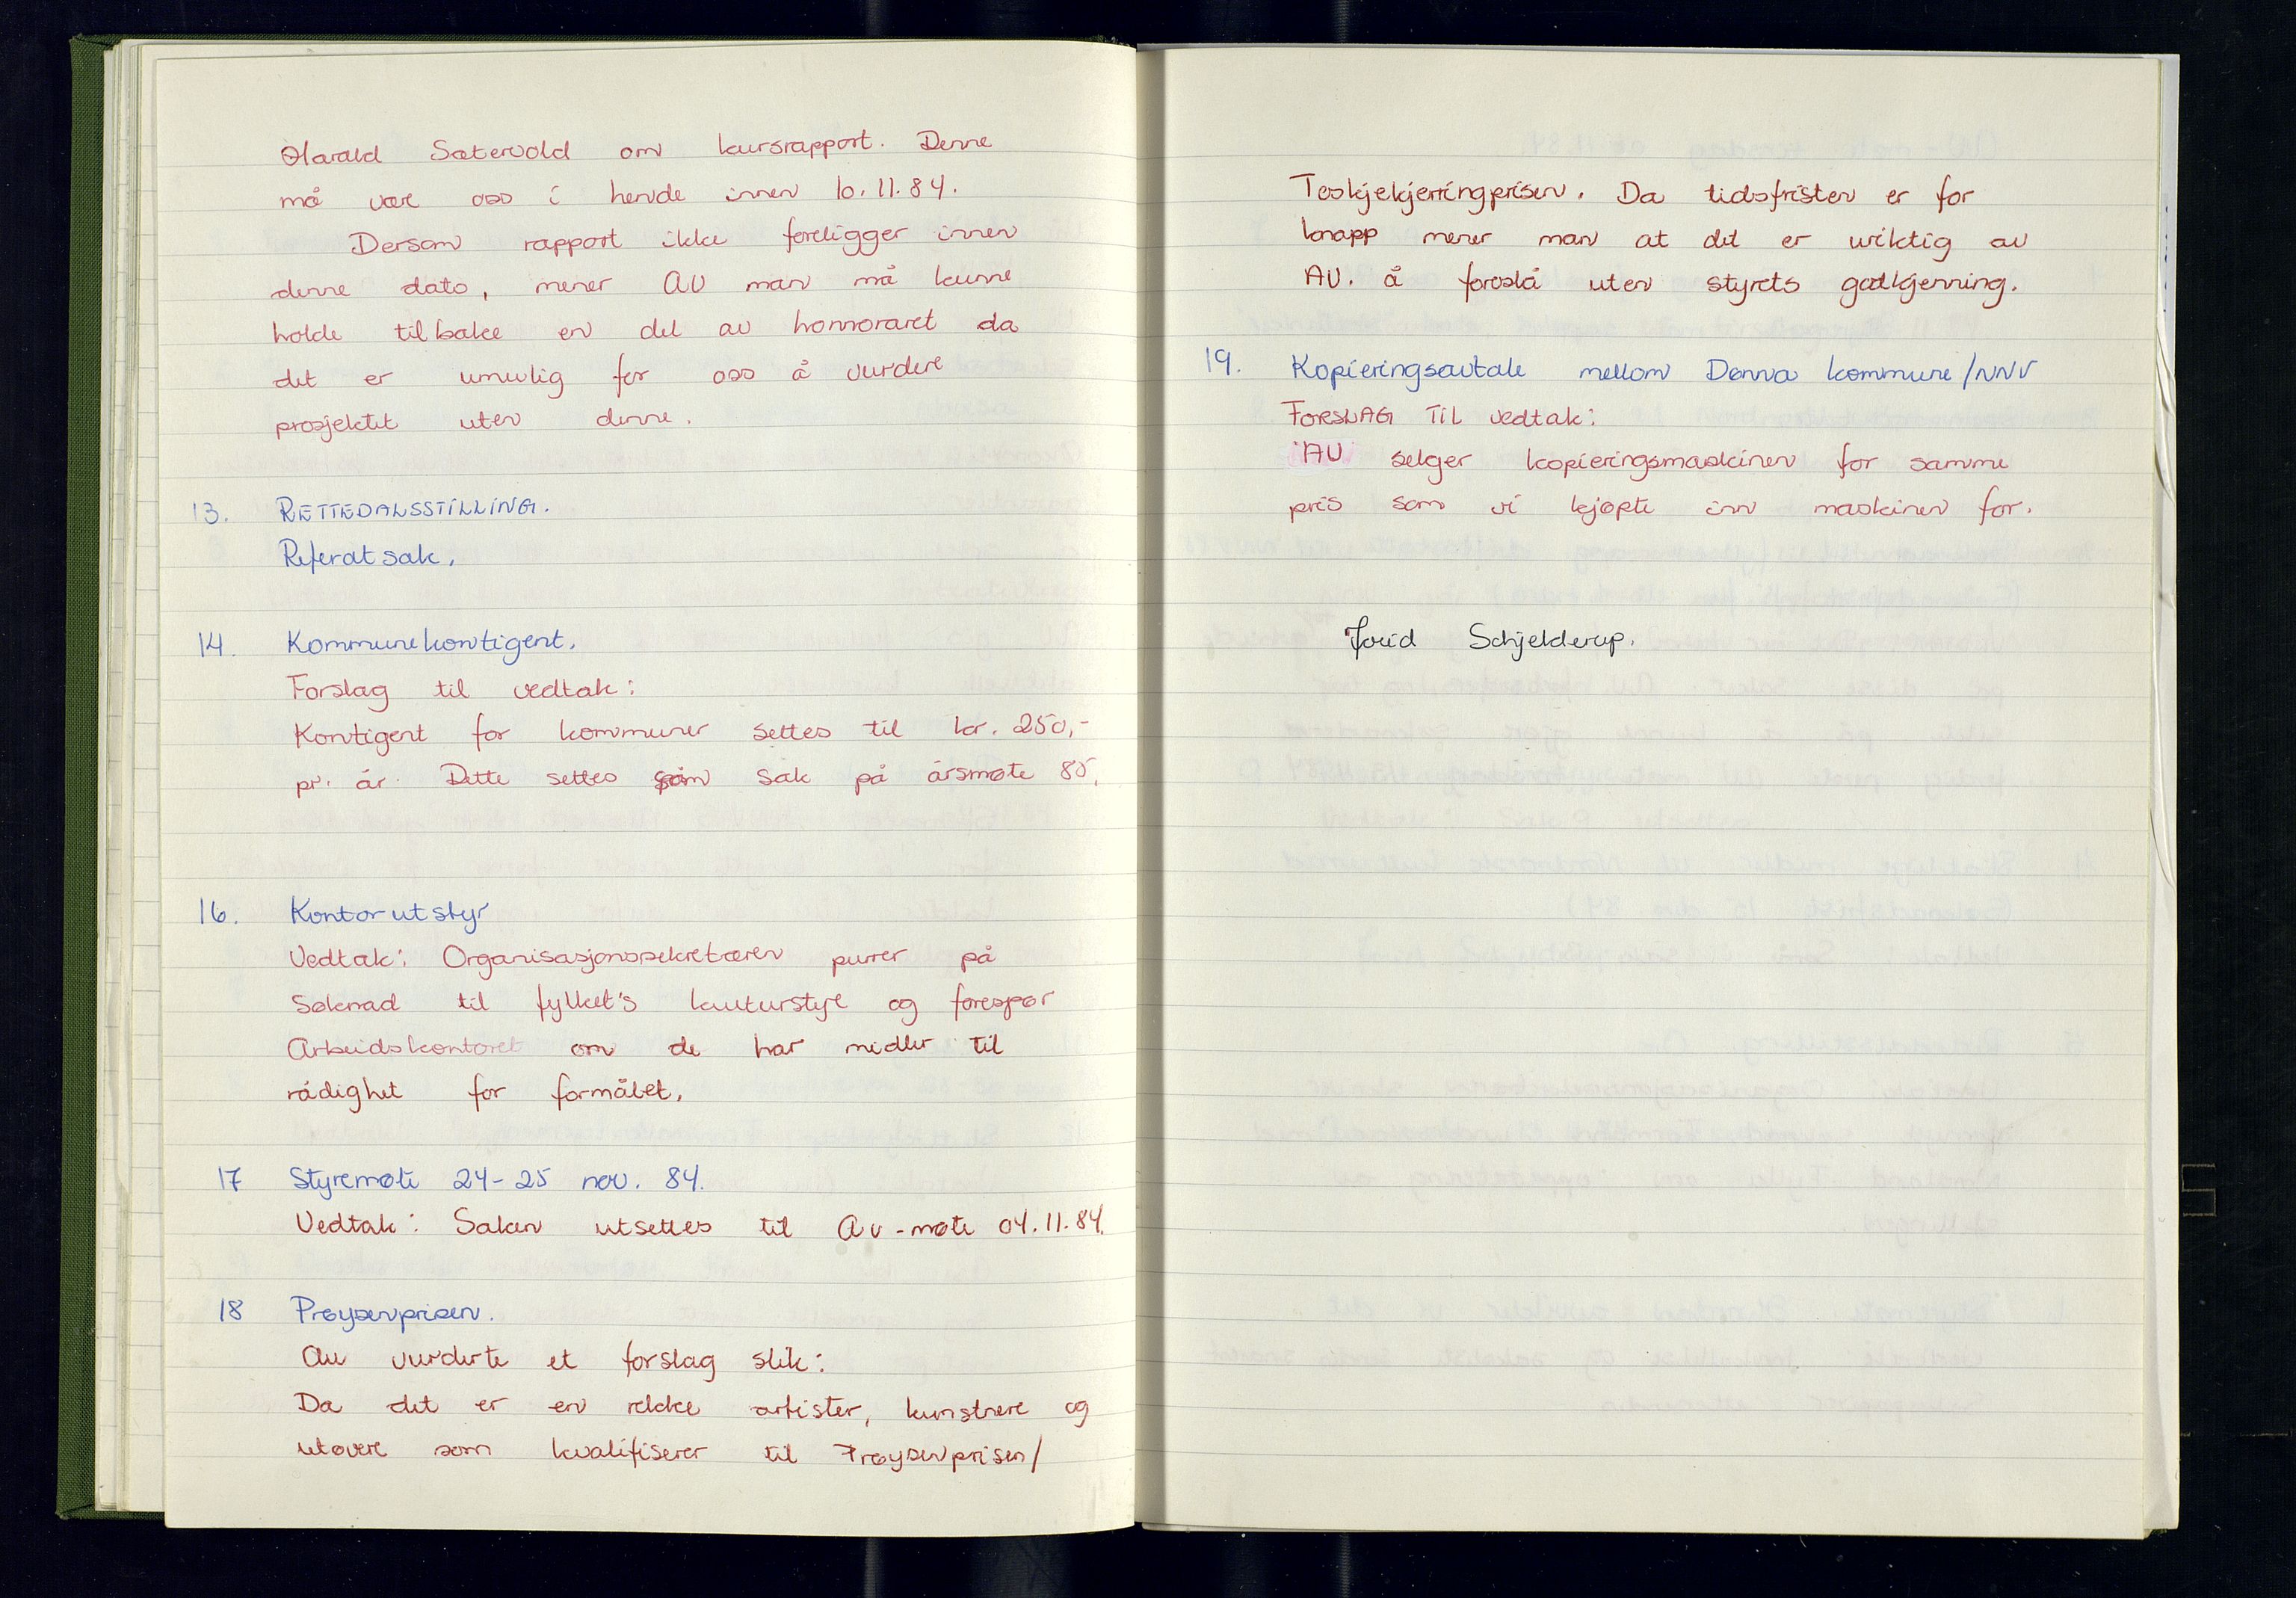 Harald Sætervold om kursrapport. Denne
må være oss i hende innen 10.11.84.
Dersom rapport ikke foreligger innen
denne dato, mener AU man må kunne
holde tilbake en del av honoraret da
det er umulig for oss å vurdere
prosjektet uten denne.
13. RETTEDALSSTILLING.
Referatsak.
14. Kommunekontigent.
Forslag til vedtak:
Kontigent for kommuner settes til kr. 250,-
pr. år. Dette settes som sak på årsmøte 85.
16. Kontorutstyr
Vedtak: Organisasjonssekretæren purrer på
søknad til fylket's kuturstyre og forespør
Arbeidskontoret om de har midler til
rådighet for formålet.
17 Styremøte 24-25 nov. 84.
Vedtak: Saken utsettes til AU-møte 04.11.84.
18 Prøysenprisen.
Au vurderte et forslag slik:
Da det er en rekke artister, kunstnere og
utøvere som kvalifiserer til Prøysenprisen/
Teskjekjerringprisen. Da tidsfristen er for
knapp mener man at det er uriktig av
AU. å foreslå uten styrets godkjenning.
19. Kopieringsavtale mellom Dønna kommune/NNV
FORSLAG TIL vedtak:
AU selger kopieringsmaskinen for samme
pris som vi kjøpte inn maskinen for.
Jorid Schjelderup.